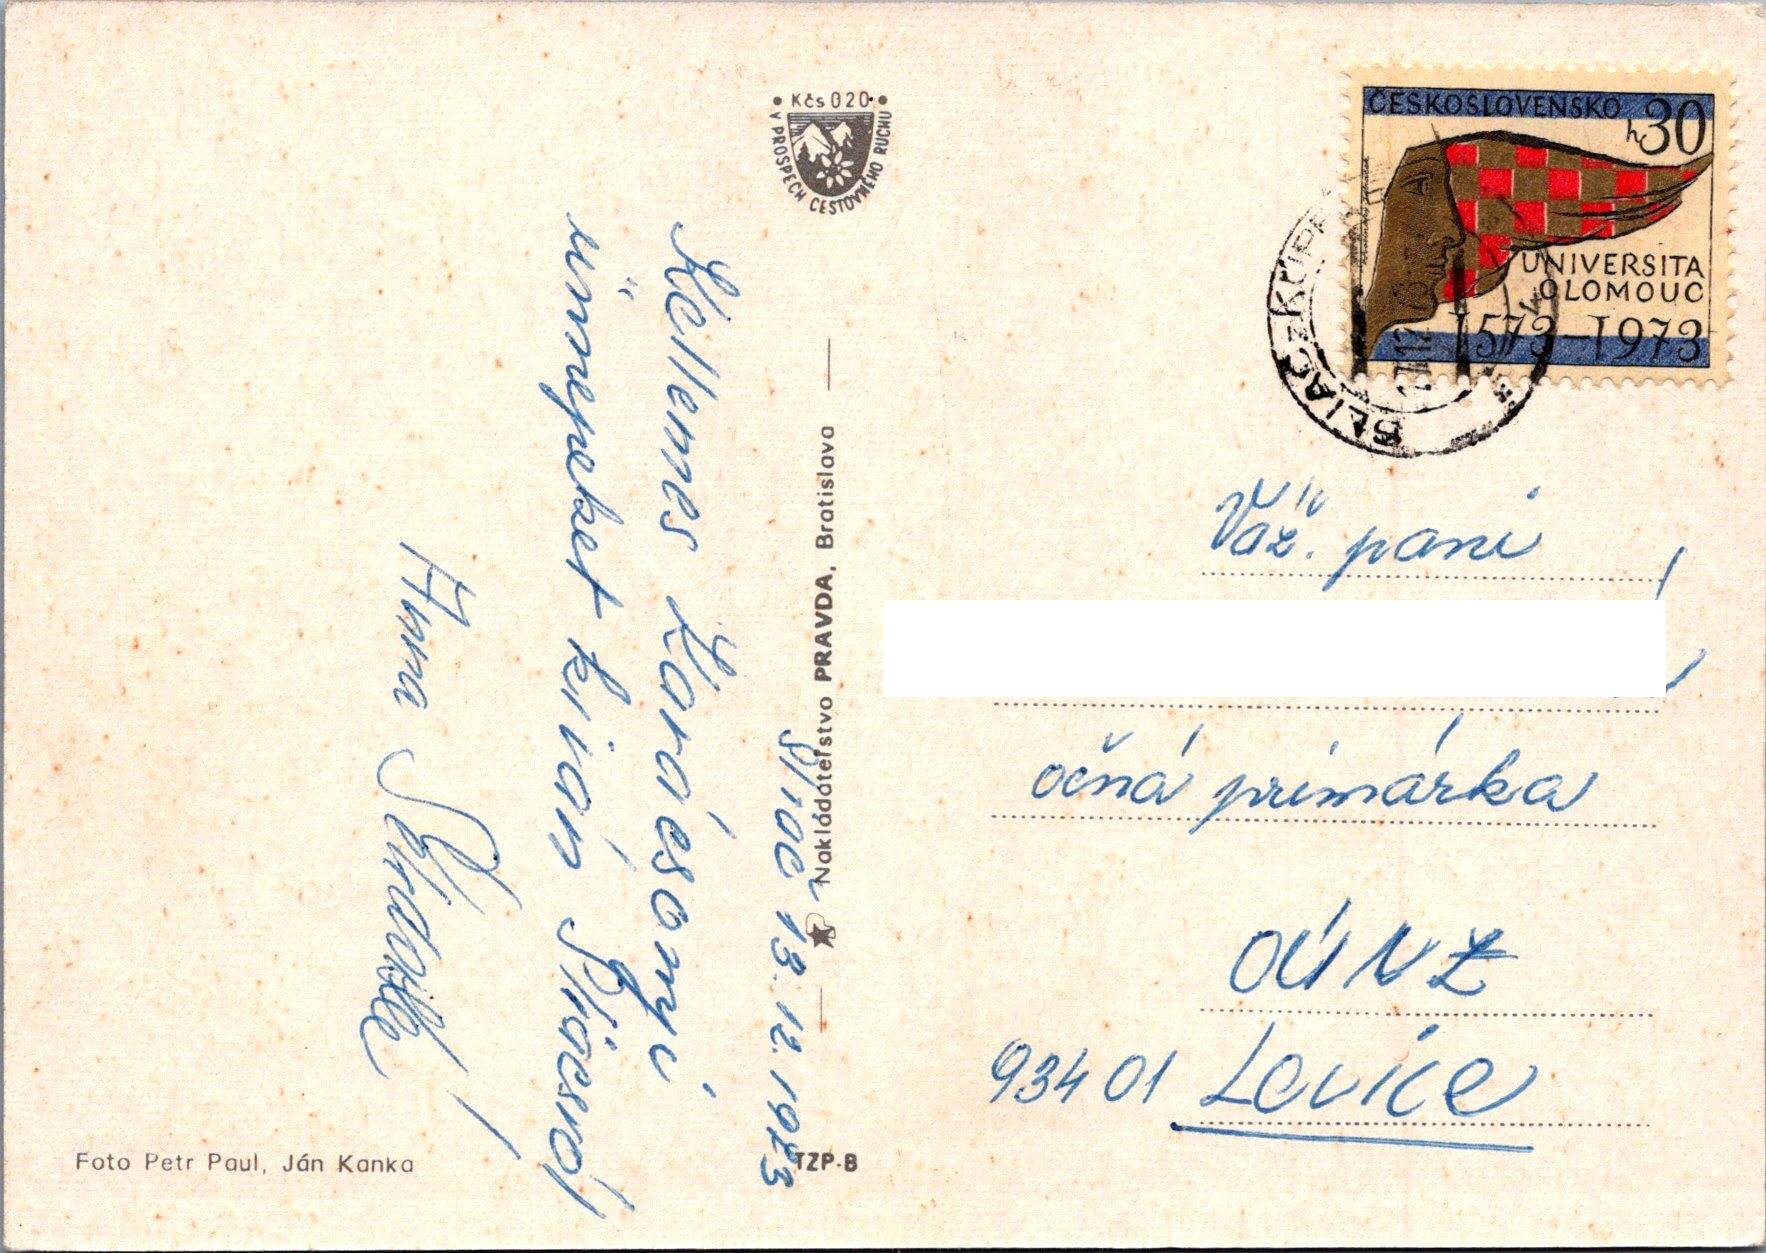 Kčs 0 20
V PROSPECH CESTOVNÉHO RUCHU
ČESKOSLOVENSKO
h 30
UNIVERSITA
OLOMOUC
1573-1973
SLIAČ-KÚPE
Sliač 13. 12. 1973
Kellemes Karácsonyi
ünnepeket kiván Sliácsról
Anna
Nakladateľstvo PRAVDA, Bratislava
TZP-B
Foto Petr Paul, Ján Kanka
Váž. pani
očná primárka
OÚNZ
934 01 Levice